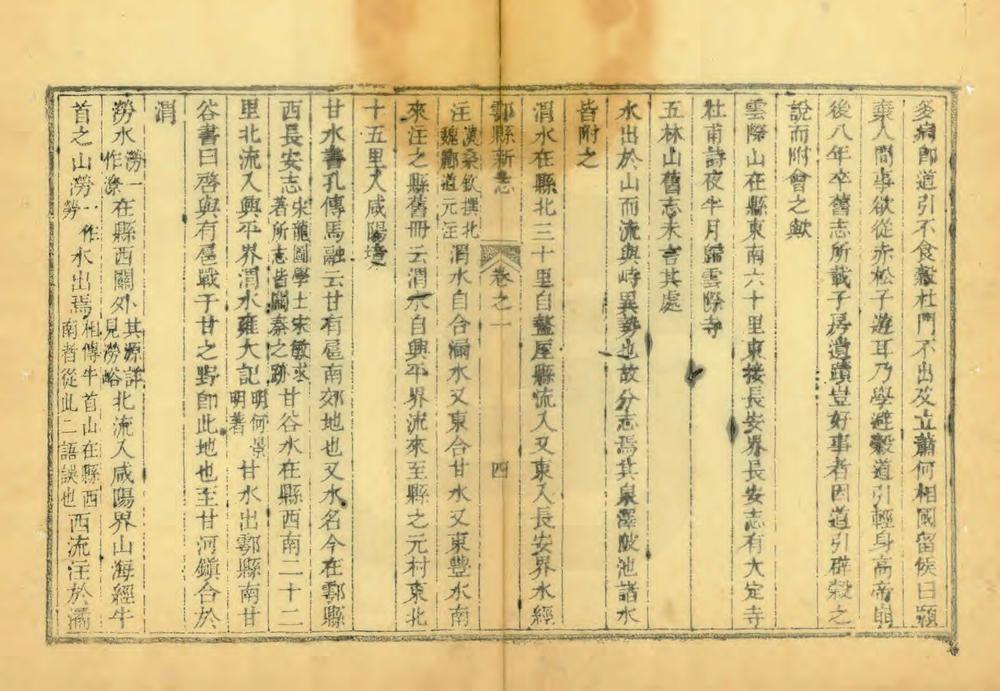 多病卽道引不食穀杜門不出及立蕭何相國留候曰願
棄人間事欲從赤松子遊耳乃學避穀道引輕身高帝崩
後八年卒舊志所載子房遺蹟豈好事者因道引辟穀之
說而附會之歟
雲際山在縣東南六十里東接長安界長安志有大定寺
杜甫詩夜半月歸雲際寺
五林山舊志未言其處
水出於山而流與峙異勢也故分志焉其泉澤陂池諸水
皆附之
渭水在縣北三十里自盩厔縣流入又東入長安界水經
鄠縣新志 卷之一 四
注漢桑欽撰北魏酈道元注渭水自合漏水又東合甘水又東豐水南
來注之縣舊冊云渭水自興平界流來至縣之元村東北
十五里入咸陽境
甘水書孔傳馬融云甘有扈南郊地也又水名今在鄠縣
西長安志宋龍圖學士宋敏求著所志皆關秦之跡甘谷水在縣西南二十二
里北流入興平界渭水雍大記明何景明著甘水出鄠縣南甘
谷書曰啓與有扈戰于甘之野卽此地也至甘河鎭合於
渭
澇水澇一作潦在縣西關外其源詳見澇峪北流入咸陽界山海經牛
首之山澇一作勞水出焉相傳牛首山在縣西南者從此二語誤也西流注於潏